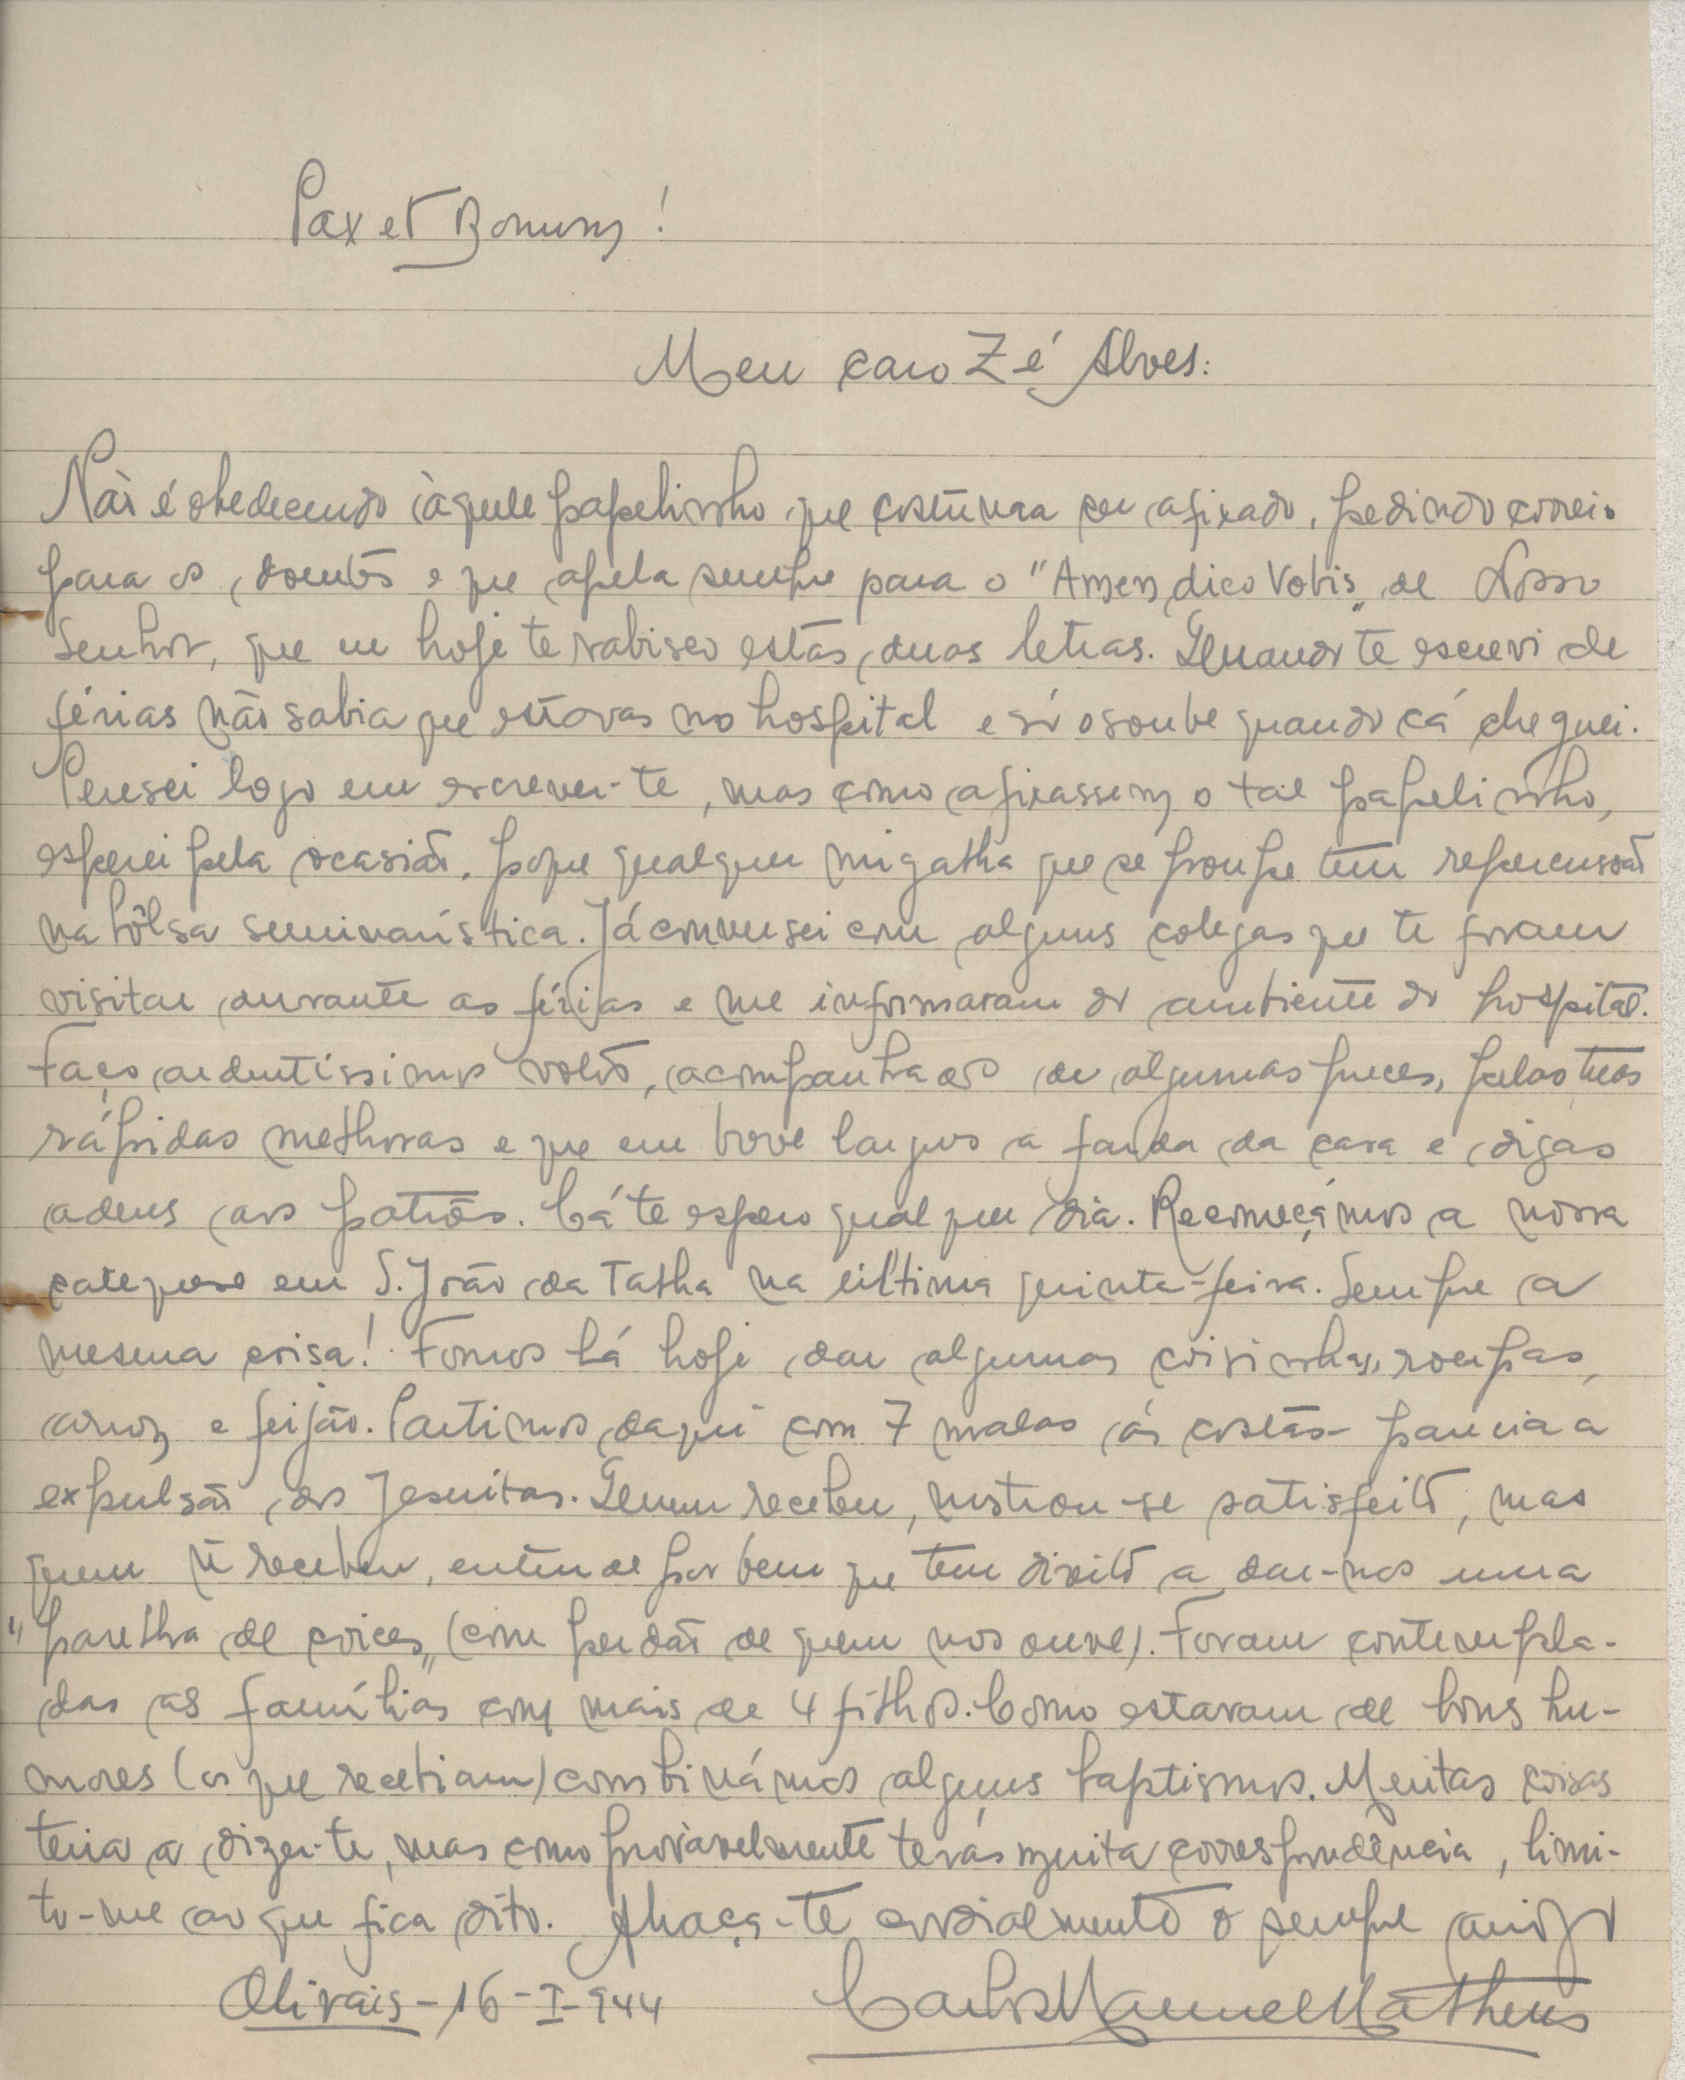 Pax et Bonum!
Meu caro Zé Alves:
Não é obedecendo àquele papelinho que costuma ser afixado, pedindo correio
para os doentes e que apela sempre para o "Amen dico Vobis" de Nosso
Senhor, que eu hoje te rabisco estas duas letras. Quando te escrevi de
férias não sabia que estavas no hospital e só o soube quando cá cheguei.
Pensei logo em escrever-te, mas como afixassem o tal papelinho,
esperei pela ocasião, porque qualquer migalha que se poupe tem repercussão
na bôlsa seminarística. Já conversei com alguns colegas que te foram
visitar durante as férias e me informaram do ambiente do hospital.
Faço ardentíssimos votos, acompanhados de algumas preces, pelas tuas
rápidas melhoras e que em breve largues a farda da casa e digas
adeus aos patrões. Cá te espero qualquer dia. Recomeçámos a nossa
catequese em S. João da Talha na última quinta-feira. Sempre a
mesma coisa! Fomos lá hoje dar algumas coisinhas, roupas,
arroz e feijão. Partimos daqui com 7 malas ás costas - parecia a
expulsão dos Jesuitas. Quem recebeu, mostrou-se satisfeito, mas
quem ñ recebeu, entende por bem que tem direito a dar-nos uma
"parelha de coices" (com perdão de quem nos ouve). Foram contempla-
das as famílias com mais de 4 filhos. Como estavam de bons hu-
mores (os que recebiam) combinámos alguns baptismos. Muitas coisas
teria a dizer-te, mas como provàvelmente terás muita correspondência, limi-
to-me ao que fica dito. Abraça-te cordialmente o sempre amigo
Olivais - 16-I-944 Carlos Manuel Matheus